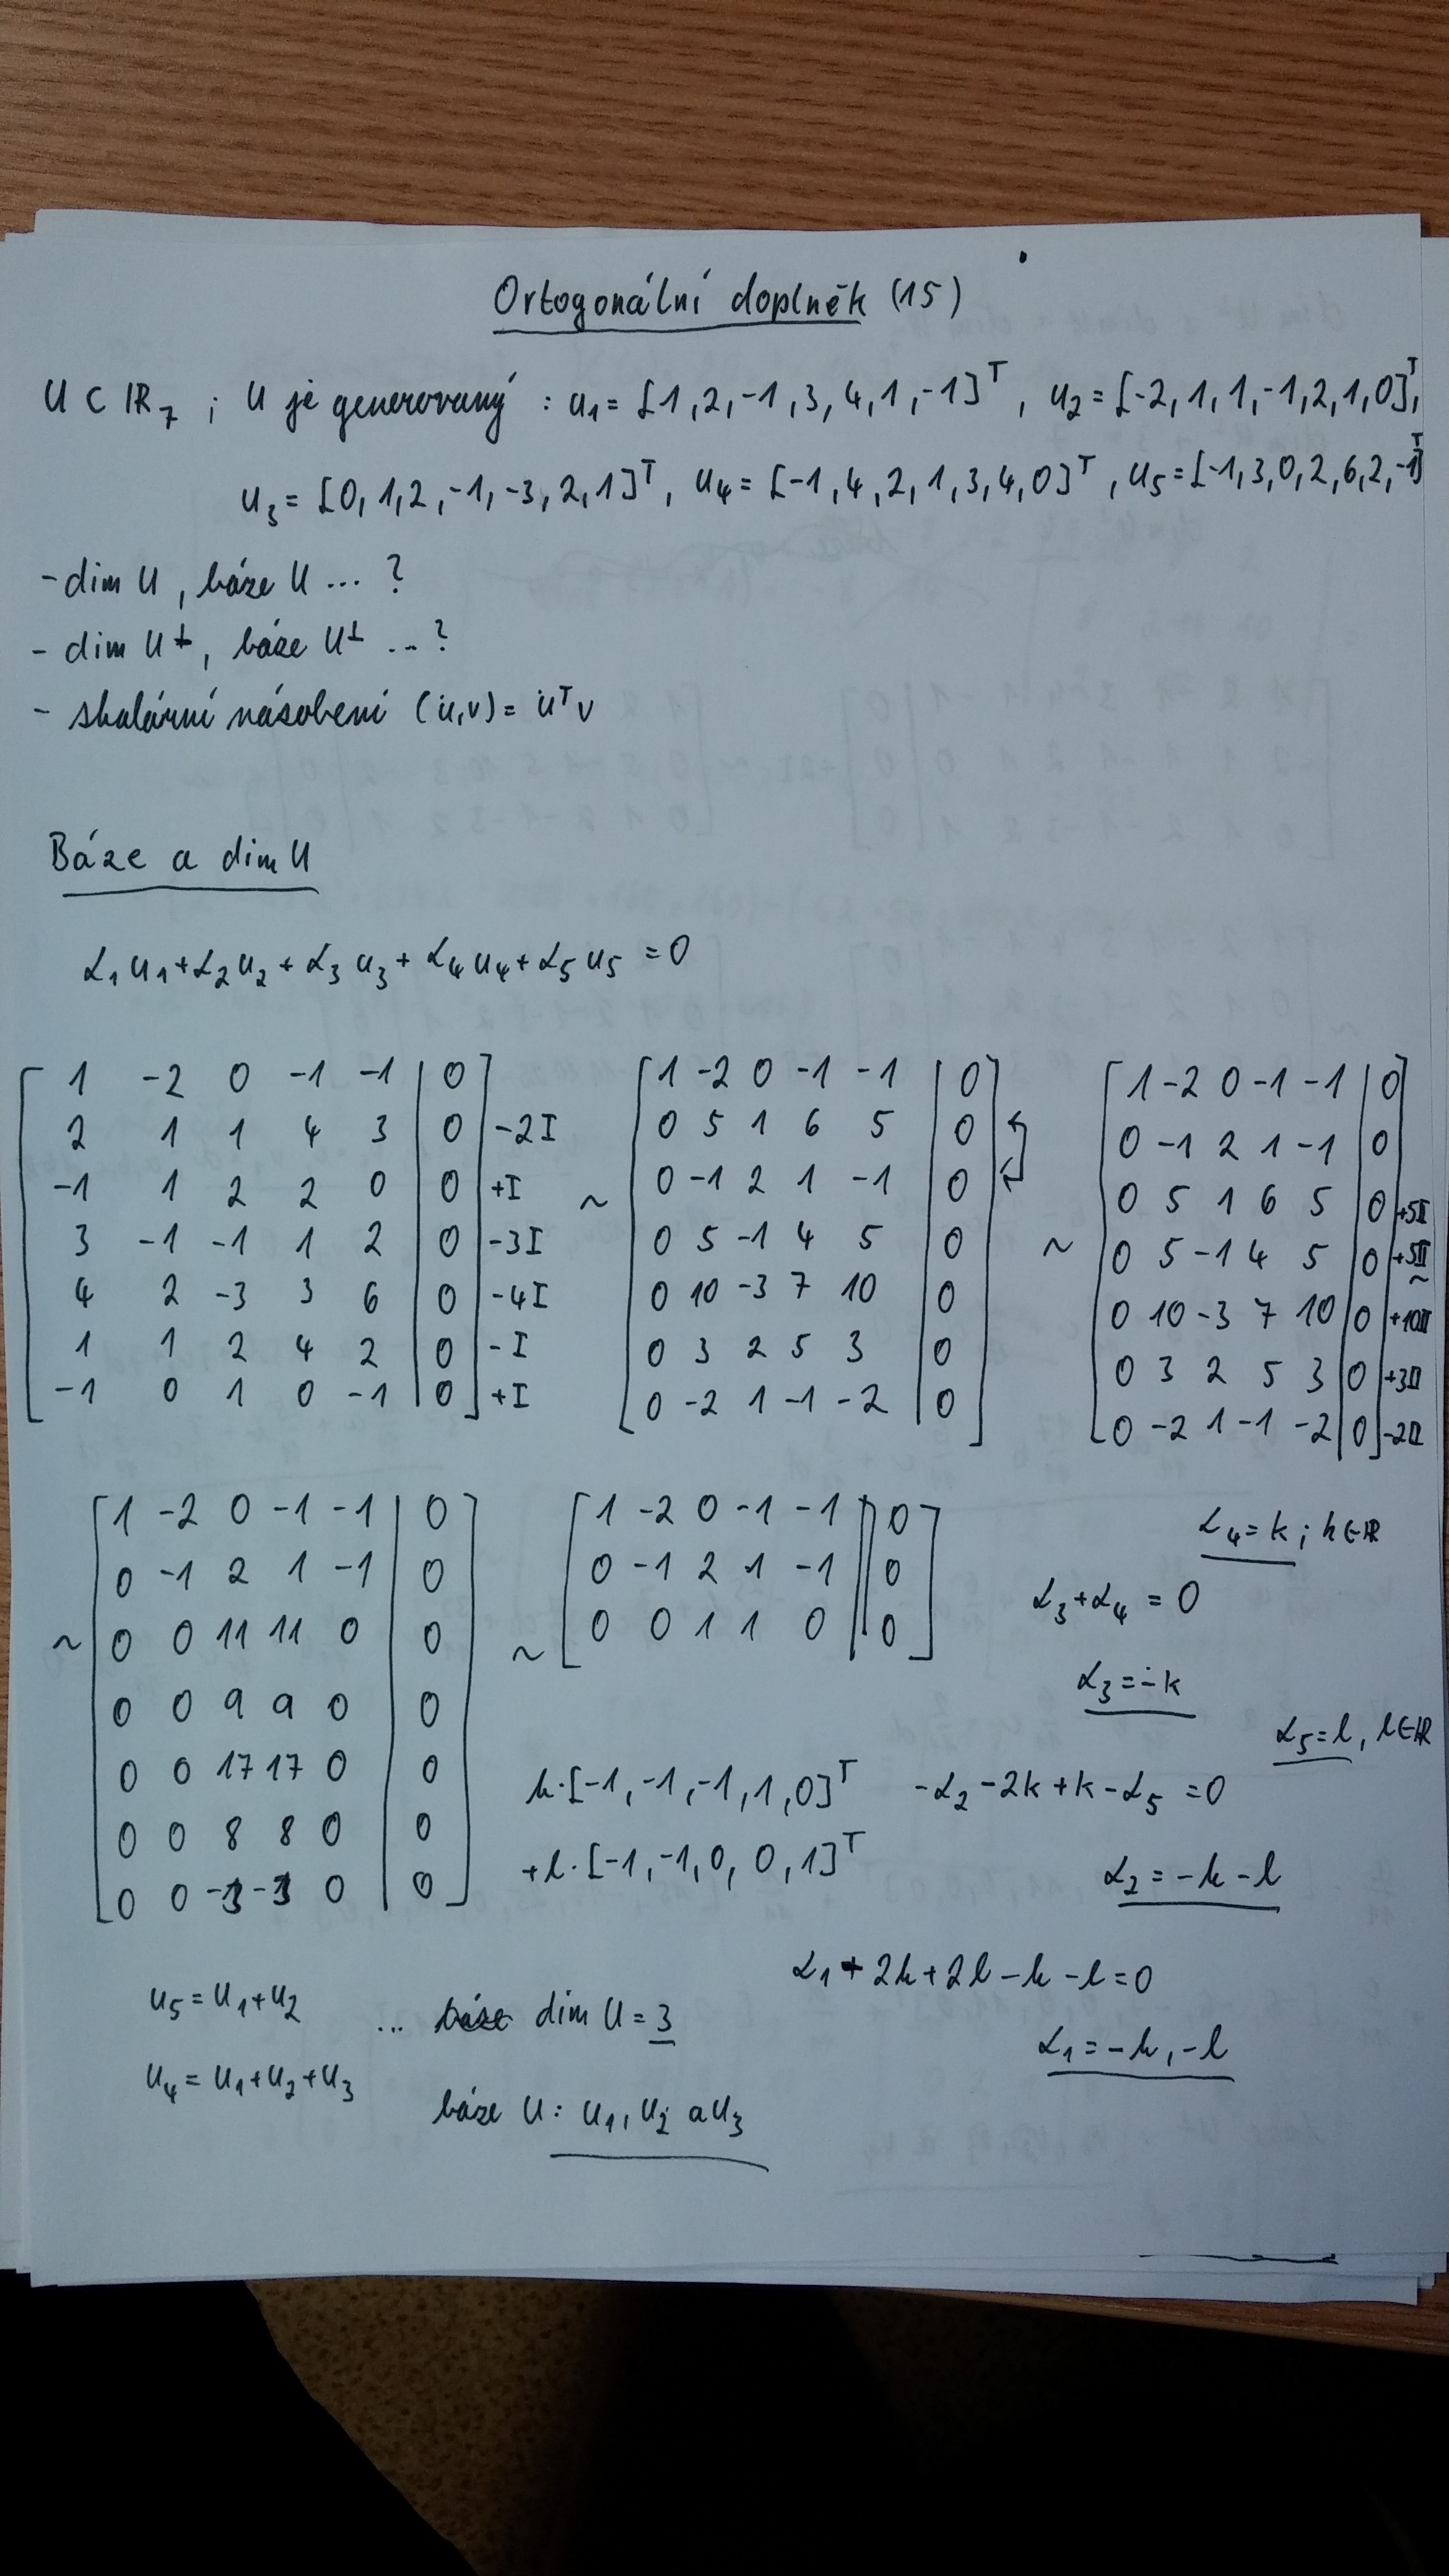 Ortogonální doplněk (15)
U ⊂ IR₇ ; U je generovaný : u₁ = [1, 2, -1, 3, 4, 1, -1]ᵀ , u₂ = [-2, 1, 1, -1, 2, 1, 0]ᵀ,
u₃ = [0, 1, 2, -1, -3, 2, 1]ᵀ, u₄ = [-1, 4, 2, 1, 3, 4, 0]ᵀ , u₅ = [-1, 3, 0, 2, 6, 2, -1]ᵀ
- dim U , báze U ... ?
- dim U⊥, báze U⊥ ... ?
- skalární násobení (u,v) = uᵀv
Báze a dim U
α₁u₁ + α₂u₂ + α₃u₃ + α₄u₄ + α₅u₅ = 0
1 -2 0 -1 -1 | 0
2 1 1 4 3 | 0 -2I
-1 1 2 2 0 | 0 +I
3 -1 -1 1 2 | 0 -3I
4 2 -3 3 6 | 0 -4I
1 1 2 4 2 | 0 -I
-1 0 1 0 -1 | 0 +I
~
1 -2 0 -1 -1 | 0
0 5 1 6 5 | 0
0 -1 2 1 -1 | 0
0 5 -1 4 5 | 0
0 10 -3 7 10 | 0
0 3 2 5 3 | 0
0 -2 1 -1 -2 | 0
~
1 -2 0 -1 -1 | 0
0 -1 2 1 -1 | 0
0 5 1 6 5 | 0 +5II
0 5 -1 4 5 | 0 +5II
0 10 -3 7 10 | 0 +10II
0 3 2 5 3 | 0 +3II
0 -2 1 -1 -2 | 0 -2II
~
~
1 -2 0 -1 -1 | 0
0 -1 2 1 -1 | 0
0 0 11 11 0 | 0
0 0 9 9 0 | 0
0 0 17 17 0 | 0
0 0 8 8 0 | 0
0 0 -3 -3 0 | 0
~
1 -2 0 -1 -1 || 0
0 -1 2 1 -1 || 0
0 0 1 1 0 || 0
α₄ = k ; k ∈ IR
α₃ + α₄ = 0
α₃ = -k
α₅ = l, l ∈ IR
k·[-1, -1, -1, 1, 0]ᵀ
-α₂ - 2k + k - α₅ = 0
+l·[-1, -1, 0, 0, 1]ᵀ
α₂ = -k - l
α₁ + 2k + 2l - k - l = 0
α₁ = -k, -l
u₅ = u₁ + u₂
... dim U = 3
u₄ = u₁ + u₂ + u₃
báze U: u₁, u₂ a u₃